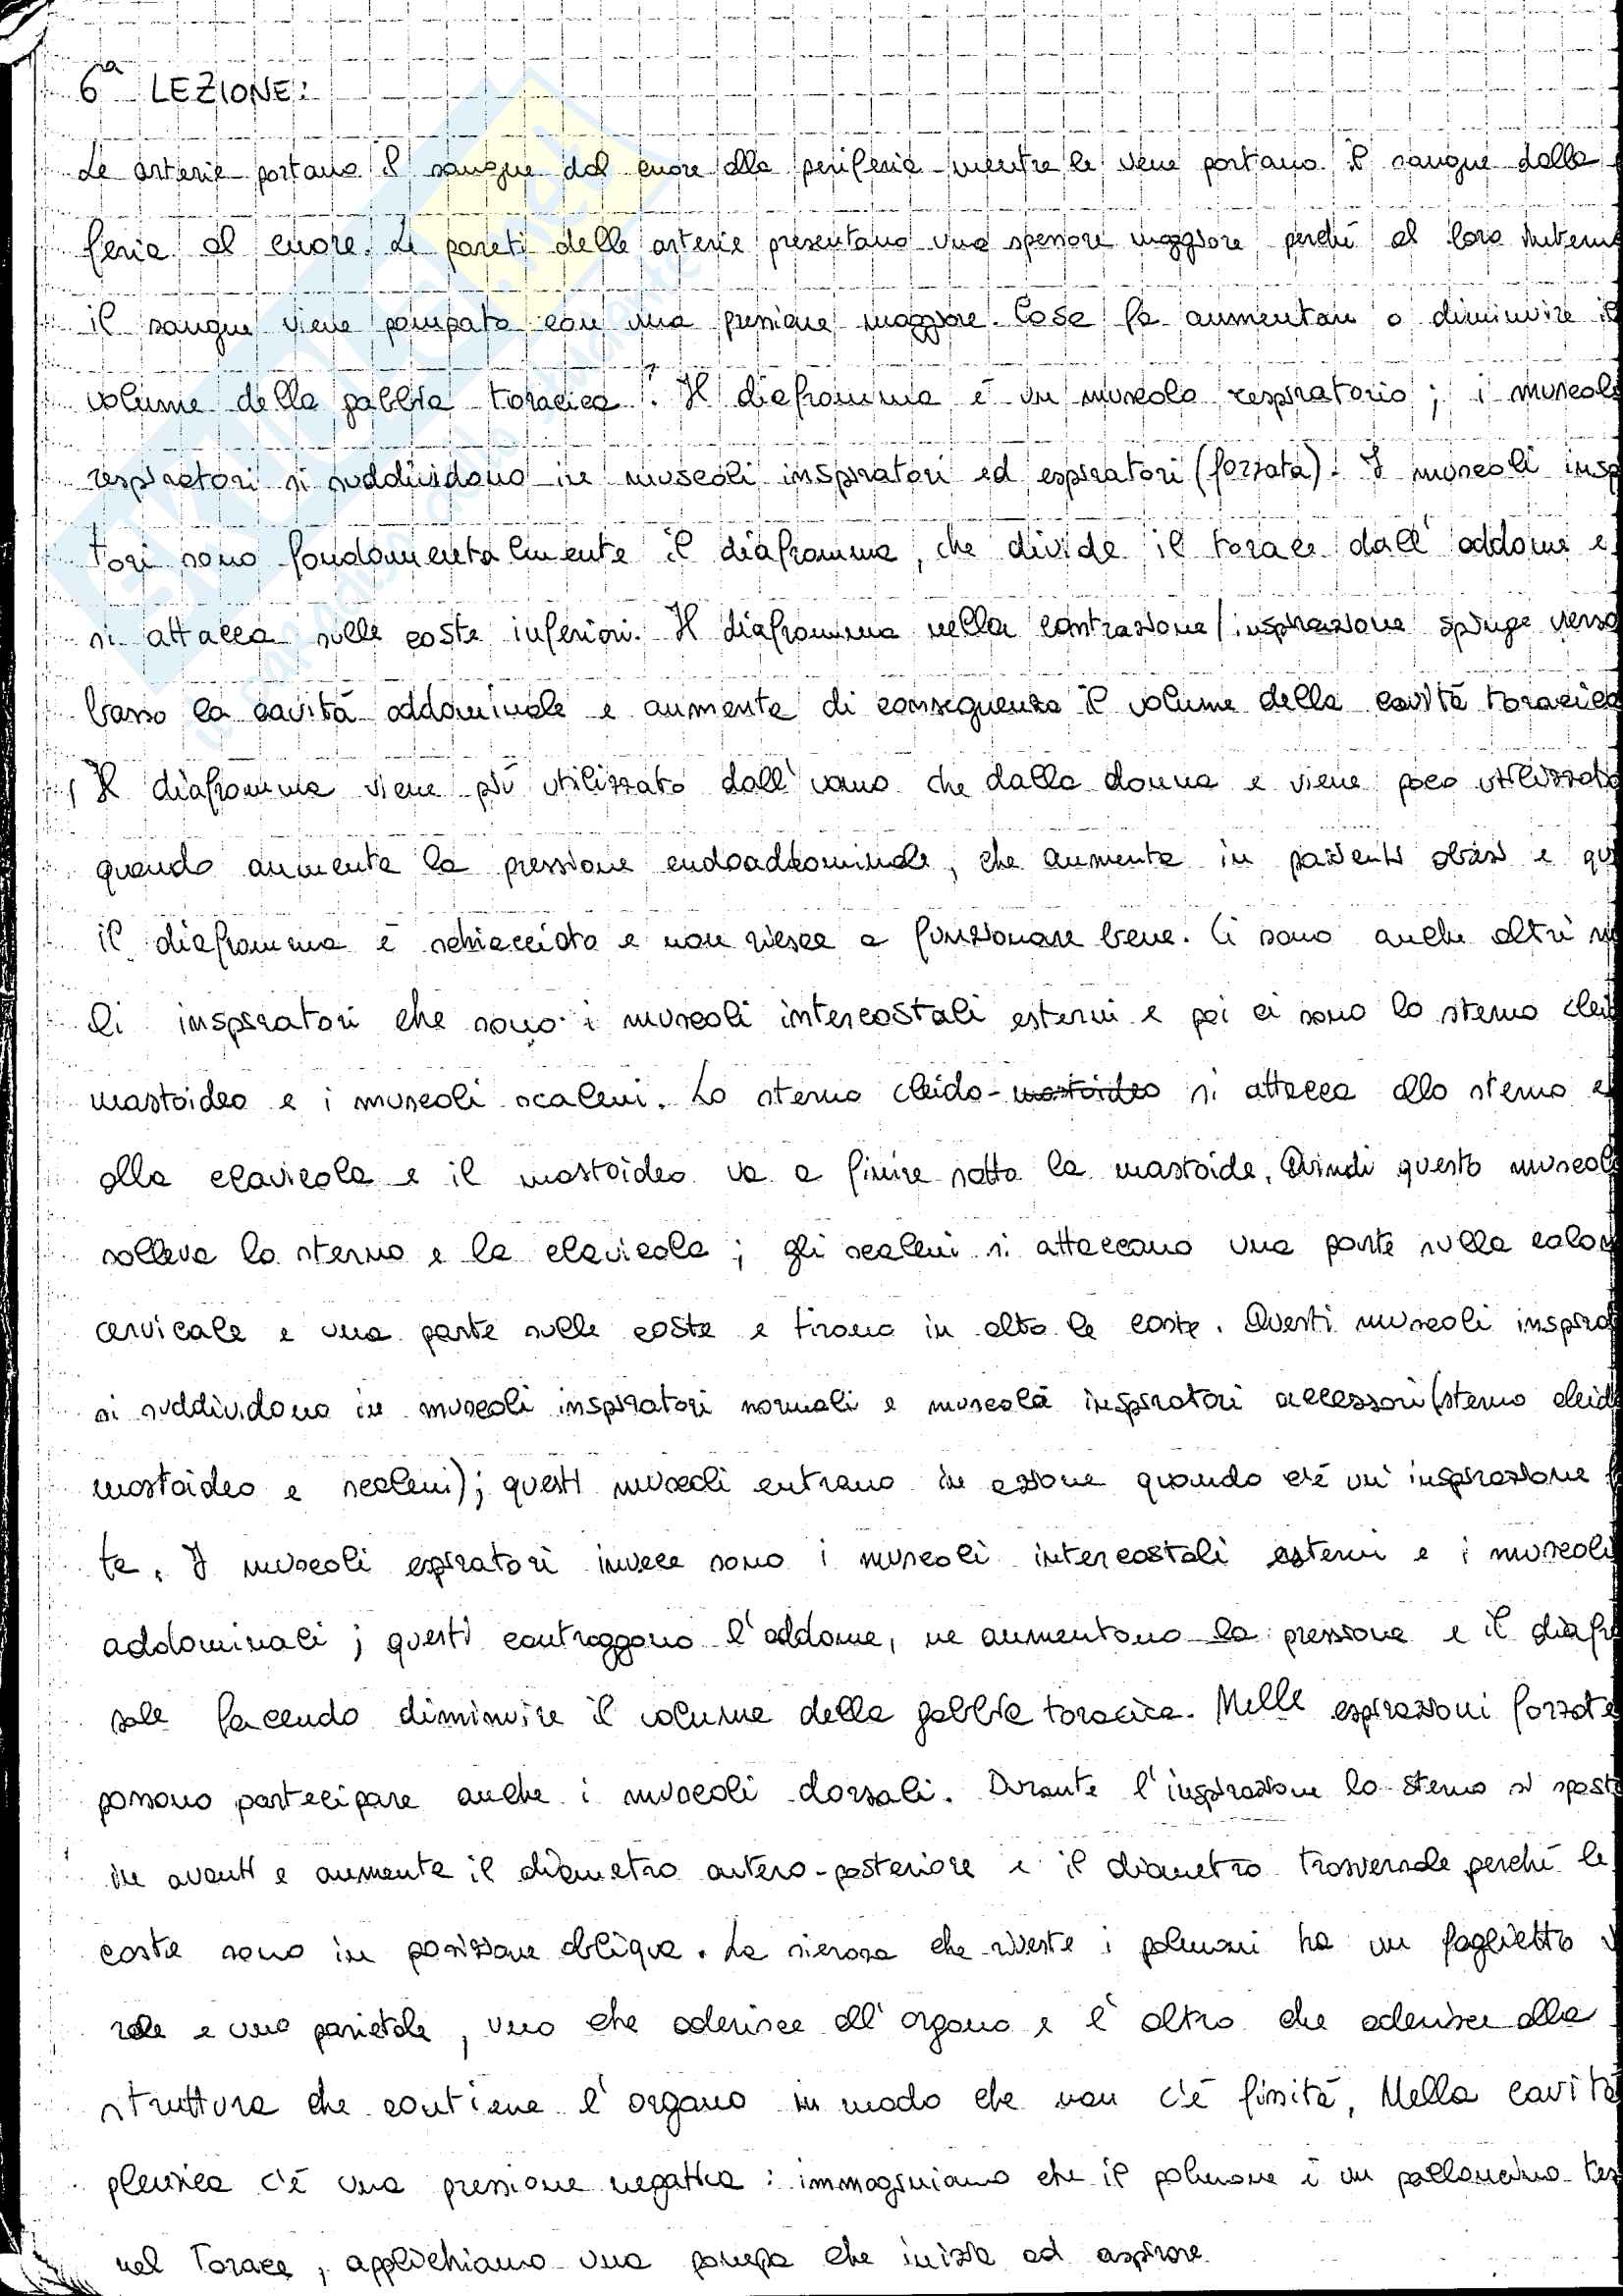 6ª LEZIONE:
Le arterie portano il sangue dal cuore alla periferia mentre le vene portano il sangue dalla
feria al cuore. Le pareti delle arterie presentano uno spessore maggiore perché al loro intern
il sangue viene pompato con una pressione maggiore. Cosa fa aumentare o diminuire il
volume della gabbia toracica? Il diaframma è un muscolo respiratorio; i muscoli
respiratori si suddividono in muscoli inspiratori ed espiratori (forzata). I muscoli insp
tori sono fondamentalmente il diaframma, che divide il torace dall'addome e
si attacca sulle coste inferiori. Il diaframma nella contrazione/inspirazione spinge verso
basso la cavità addominale e aumenta di conseguenza il volume della cavità toracica
Il diaframma viene più utilizzato dall'uomo che dalla donna e viene poco utilizzato
quando aumenta la pressione endoaddominale, che aumenta in pazienti obesi e qui
il diaframma è schiacciato e non riesce a funzionare bene. Ci sono anche altri m
li inspiratori che sono i muscoli intercostali esterni e poi ci sono lo sterno cleid
mastoideo e i muscoli scaleni. Lo sterno cleido-mastoideo si attacca allo sterno e
alla clavicola e il mastoideo va a finire sotto la mastoide. Quindi questo muscol
solleva lo sterno e la clavicola; gli scaleni si attaccano una parte sulla colon
cervicale e una parte sulle coste e tirano in alto le coste. Questi muscoli inspirat
si suddividono in muscoli inspiratori normali e muscoli inspiratori accessori (sterno cleido
mastoideo e scaleni); questi muscoli entrano in azione quando c'è un'inspirazione f
ta. I muscoli espiratori invece sono i muscoli intercostali esterni e i muscoli
addominali; questi contraggono l'addome, ne aumentano la pressione e il diafr
sale facendo diminuire il volume della gabbia toracica. Nelle espirazioni forzate
possono partecipare anche i muscoli dorsali. Durante l'inspirazione lo sterno si sposta
in avanti e aumenta il diametro antero-posteriore e il diametro trasversale perché le
coste sono in posizione obliqua. La sierosa che riveste i polmoni ha un foglietto v
rale e uno parietale, uno che aderisce all'organo e l'altro che aderisce alla
struttura che contiene l'organo in modo che non c'è fissità. Nella cavità
pleurica c'è una pressione negativa: immaginiamo che il polmone è un palloncino tes
nel torace, applichiamo una pompa che inizia ad aspirare